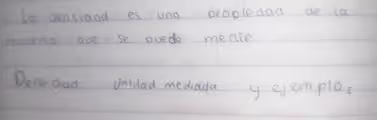 La densidad es una propiedad de la
materia que se puede medir
Densidad unidad medida y ejemplos